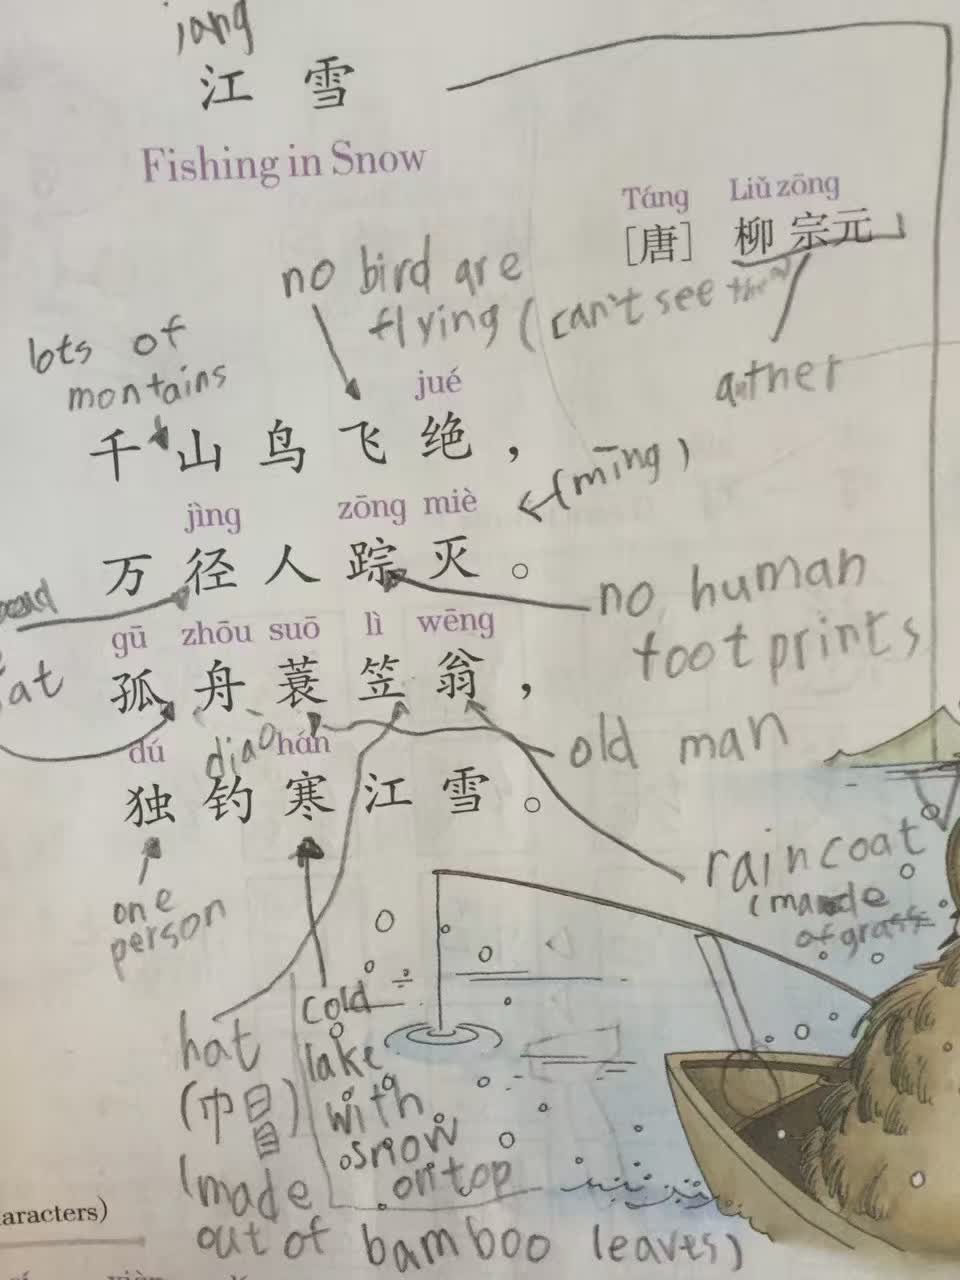 jang
江 雪
Fishing in Snow
Táng Liǔ zōng
[唐] 柳宗元
no bird are
flying (can't see them
lots of
montains
auther
jué
千山鸟飞绝，
(mīng)
jìng zōng miè
万径人踪灭。
no human
footprints
gū zhōu suō lì wēng
孤舟蓑笠翁，
old man
dú diao hán
独钓寒江雪。
raincoat
(made
of grass
one
person
hat
(巾冒)
(made
out of bamboo leaves)
cold
lake
with
snow
on top
aracters)